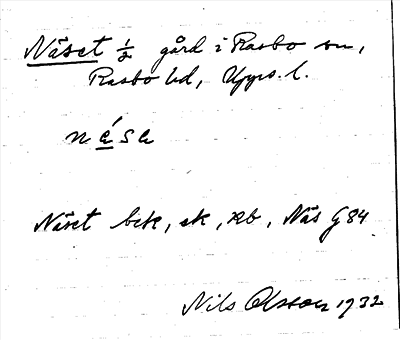 Näset ½ gård i Rasbo sn,
Rasbo hd, Upps. l.
nése
Näset bek, ek, Rb, Näs G84
Nils Olsson 1932